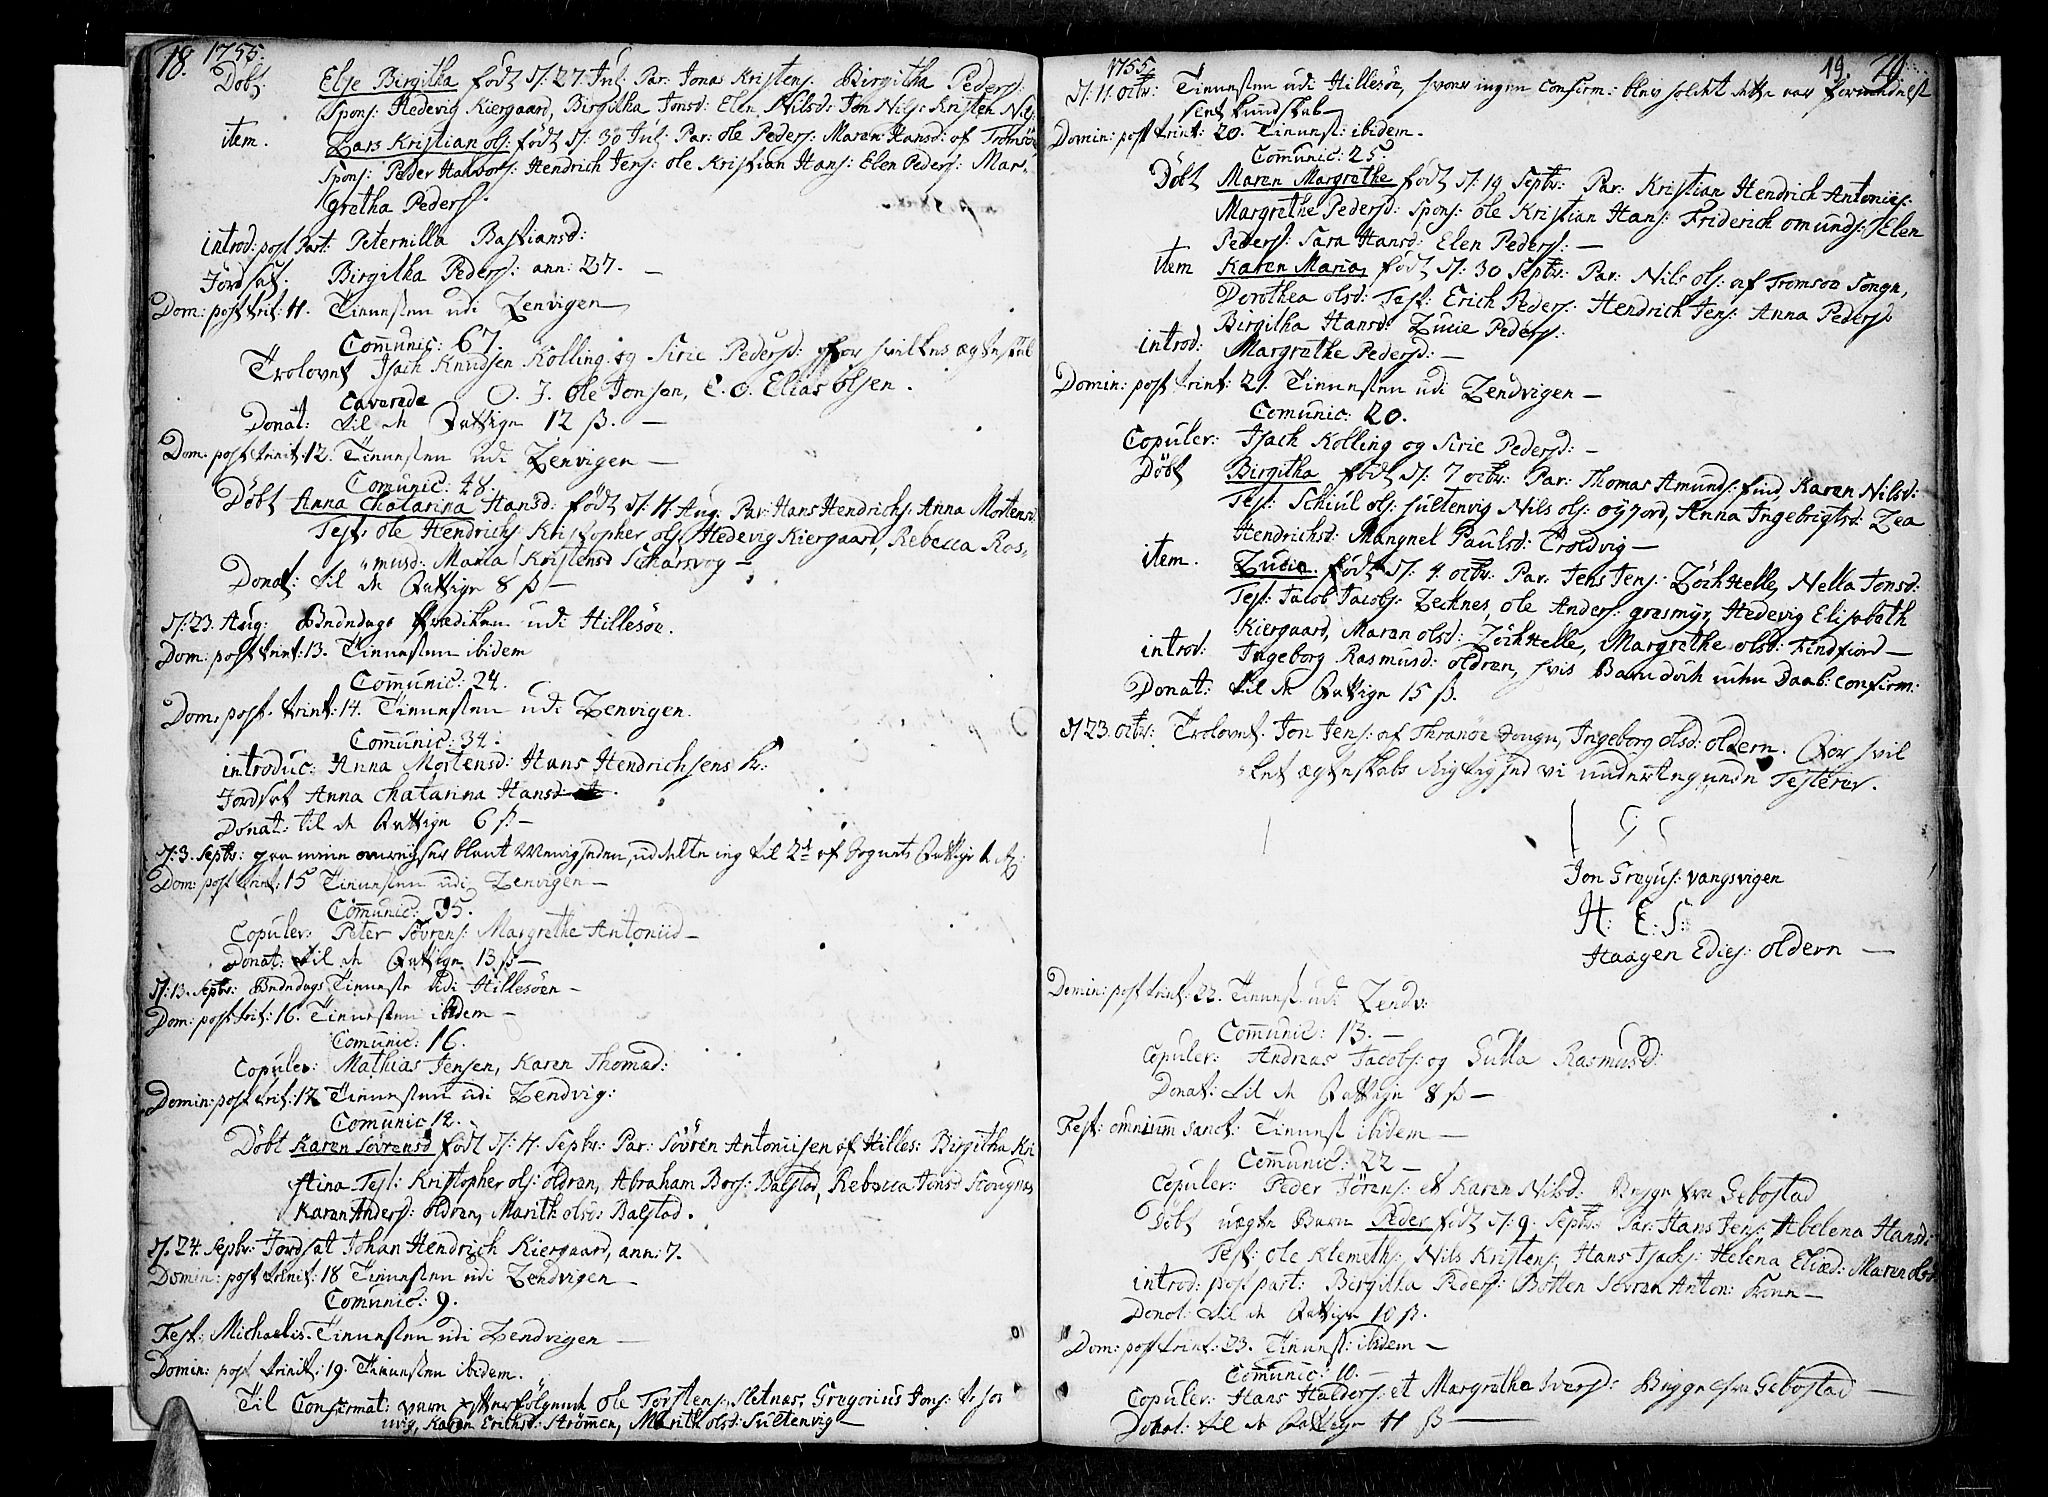 18. 1755.
Döbt Else Birgitha född d: 27 Jul: Par: Jonas Kristens: Birgitha Peders:
Spons: Hedevig Kiergaard, Birgitha Jonsd: Elen Nilsd: Jon Nils: Kristen Nils:
item. Lars Kristian ols: född d: 30 Jul: Par: ole Peders: Maren Hansd: af Tromsöe
Spons: Peder Halvors: Hendrich Jens: ole Kristian Hans: Elen Peders: Mar-
gretha Peders.
introd: post Part: Peternilla Bastiansd:
Jordsat. Birgitha Peders: ann: 27. —
Dom: post trit: 11. Tienesten udi Lenvigen
Comunic: 67.
Trolovet Isach Knudsen Kolling og Siric Pedersd: for hvilkes ægteskab
caverede O. J. Ole Jonsen, E. O. Elias olsen.
Donat: til de Fattige 12 ß. —
Dom: post trinit: 12. Tienesten udi Lenvigen —
Comunic: 48
Döbt Anna Chatarina Hansd: född d: 11 Aug: Par: Hans Hendrichs: Anna Mortensd:
Test: ole Hendrichs: Kristopher ols: Hedevig Kiergaard, Rebecca Ras-
musd: Maria Kristensd Schårsvog —
Donat: til de Fattige 8 ß —
d: 23. Aug: Bededags Prædiken udi Hillesöe.
Dom: post trinit: 13. Tienesten ibidem
Comunic: 24.
Dom: post. trinit: 14. Tienesten udi Lenvigen.
Comunic: 34.
introduc: Anna Mortensd: Hans Hendrichsens K:
Jordset Anna Chatarina Hansd:
Donat: til de Fattige 6 ß —
d: 3. Septbr: uddelte jeg til 2de af Sognets Fattige 1
Dom: post trinit: 15 Tienesten udi Lenvigen —
Comunic: 35.
Copuler: Peter Sövrens: Margrethe Antoniid —
Donat: til de Fattige 13 ß —
d: 13. Septbr: Bededags Tieneste udi Hillesöen —
Dom: post trit: 16. Tienesten ibidem —
Comunic: 16.
Copuler: Mathias Jensen, Karen Thomæd:
Domin: post trit: 17 Tienesten udi Lendvig:
Comunic 12.
Döbt Karen Sövrensd född d: 4. Septbr: Par: Sövren Antoniisen af Hilles: Birgitha Kri
stina Test: Kristopher ols: oldran, Abraham Bors: Balstad, Rebecca Jonsd
Karen Anders: oldren, Marith olsd: Balstad.
d. 24. Septbr: Jordsat Johan Hendrich Kiergaard, ann: 7.
Domin: post trinit: 18 Tienesten udi Lendvigen —
Comunic: 9.
Fest: Michaelis. Tienesten udi Lendvigen —
Domin: post trinit: 19. Tienesten ibidem.
Til Confirmat: vare efterfölgende ole Torstens: Sletnæs, Gregorius Jons:
vig, Karen Erichsd: Strömmen, Marith olsd: Sultenvig
1755. 19. 20.
d. 11. octbr: Tienesten udi Hillesöe, hvor ingen Confirm: blev holdt dette aar formedelst
sent kundskab
Domin: post trinit: 20. Tienest: ibidem.
Comunic: 25.
Döbt Maren Margrethe född d: 19 Septbr: Par: Kristian Hendrich Antoniis:
Margrethe Pedersd: Spons: ole Kristian Hans: Friderich omunds: Elen
Peders: Sara Hansd: Elen Peders: —
item Karen Maria, född d: 30 Septbr: Par: Nils ols: af Tromsöe Sogn,
Dorothea olsd: Test: Erich Peders: Hendrich Jens: Anna Peders:
Birgitha Hansd: Lucie Peders:
introd: Margrethe Pedersd: —
Domin: post trinit: 21. Tienesten udi Lendvigen —
Comunic: 20.
Copuler: Isach Kolling og Siric Pedersd: —
Döbt Birgitha född d: 7 octbr: Par: Thomas Amunds: find, Karen Nilsd:
Test: Schiul ols: sultenvig Nils ols: öyjord, Anna Ingebrigtsd: Lea
Hendrichsd: Mangnel Paulsd: Troldvig —
item. Lucia född d: 4. octbr: Par: Jens Jens: Löckhelle, Nella Jonsd:
Test: Jacob Jacobs: Lecknes, ole Anders: grasmyr, Hedevig Elisabeth
Kiergaard, Maren olsd: Löckhelle, Margrethe olsd: Findfiord —
introd: Ingeborg Rasmusd: oldran, hvis Barn Daab: Confirm:
Donat: til de Fattige 15 ß.
d 23. octbr: Trolovet. Jon Jens: af Thranöe Sougn, Ingeborg olsd: oldern. For hvil
ket ægteskabs Rigtighed vi undertegnede Testerer.
Jon Gregus: vangsvigen
H: E: S:
Haagen Edies: oldern —
Domin: post trinit: 22. Tienest: udi Lendv:
Comunic: 13. —
Copuler: Andreas Jacobs: og Gulla Rasmusd:
Donat: til de Fattige 8 ß —
Fest: omnium Sanct: Tienest ibidem —
Comunic: 22 —
Copuler: Peder Jörens: et Karen Nilsd: Begge fra Gebostad
Döbt uægte Barn Peder född d: 9. Septbr: Par: Hans Jens: Abelena Hansd:
Test: ole Klemeths: Nils Kristens: Hans Isachs: Helena Eliæd: Maren olsd
introd: post part: Birgitha Peders: Botten Sövren Anton: Kone —
Donat: til de Fattige 10 ß.
Dom: post trinit: 23. Tienest: ibidem —
Comunic: 10. —
Copuler: Hans Halders: et Margretha Ivers: Begge fra Gebostad —
Donat: til de Fattige 11 ß —